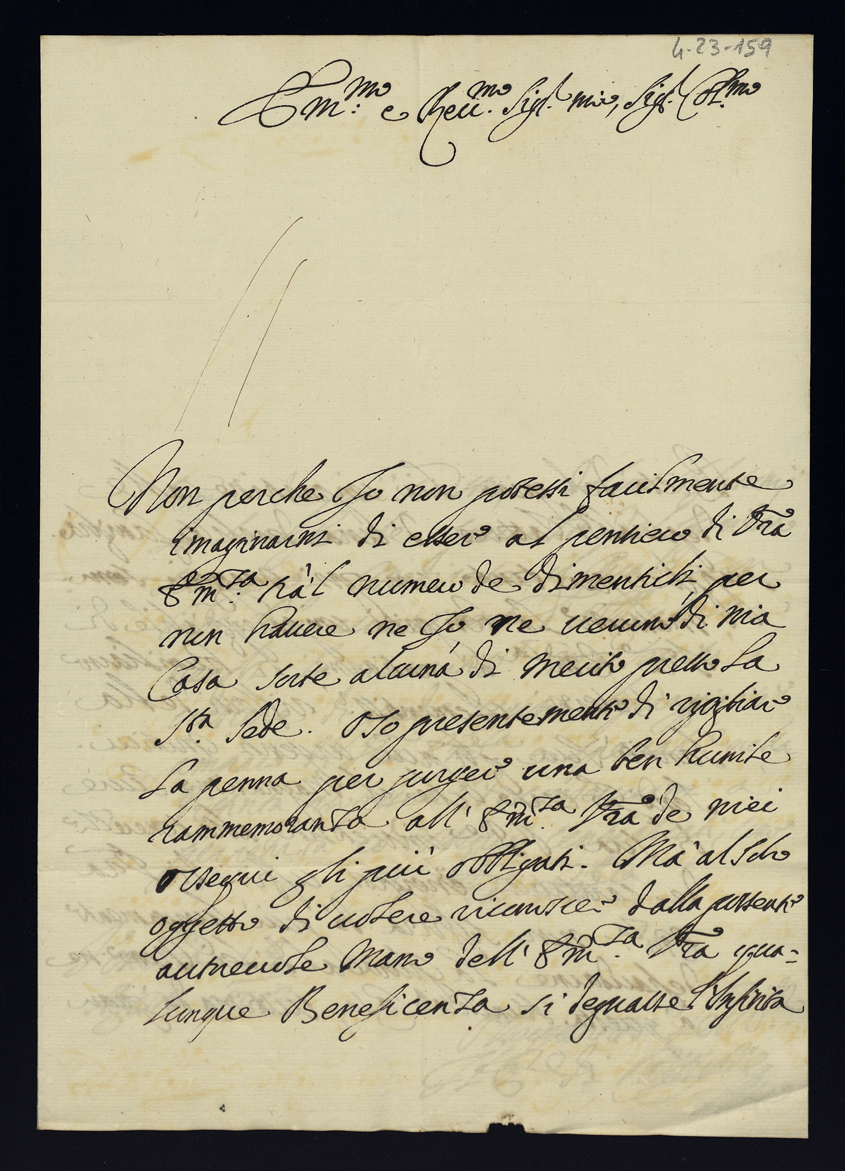 4-23-159
Em.mo e Reu.mo Sig.r mio, Sig.r Col.mo
Non perche Io non potessi facilmente
imaginarmi di esser al pensiero di Vra
Em.za trà'l numero de dimentichi, per
non hauere ne Io ne ueruno di mia
Casa sorte alcuna di merito presso la
S.ta Sede. Oso presentemente di pigliar
la penna per porger una ben humile
rammemoranza all' Em.za Vra de miei
ossequi gli più obbligati. Mà al solo
oggetto di uolere riconoscer dalla possente
autoreuole mano dell' Em.za Vra qua=
lunque Beneficenza si degnasse l'Infinita